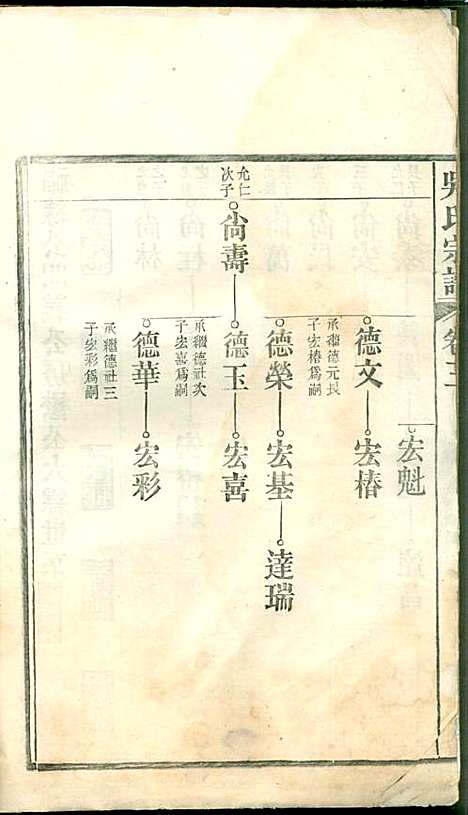 吳氏宗譜 卷十三
宏魁
允仁次子
尙壽
德文
承繼德元長子宏椿爲嗣
宏椿
德榮
宏基
達瑞
德玉
承繼德社次子宏喜爲嗣
宏喜
德華
承繼德社三子宏彩爲嗣
宏彩